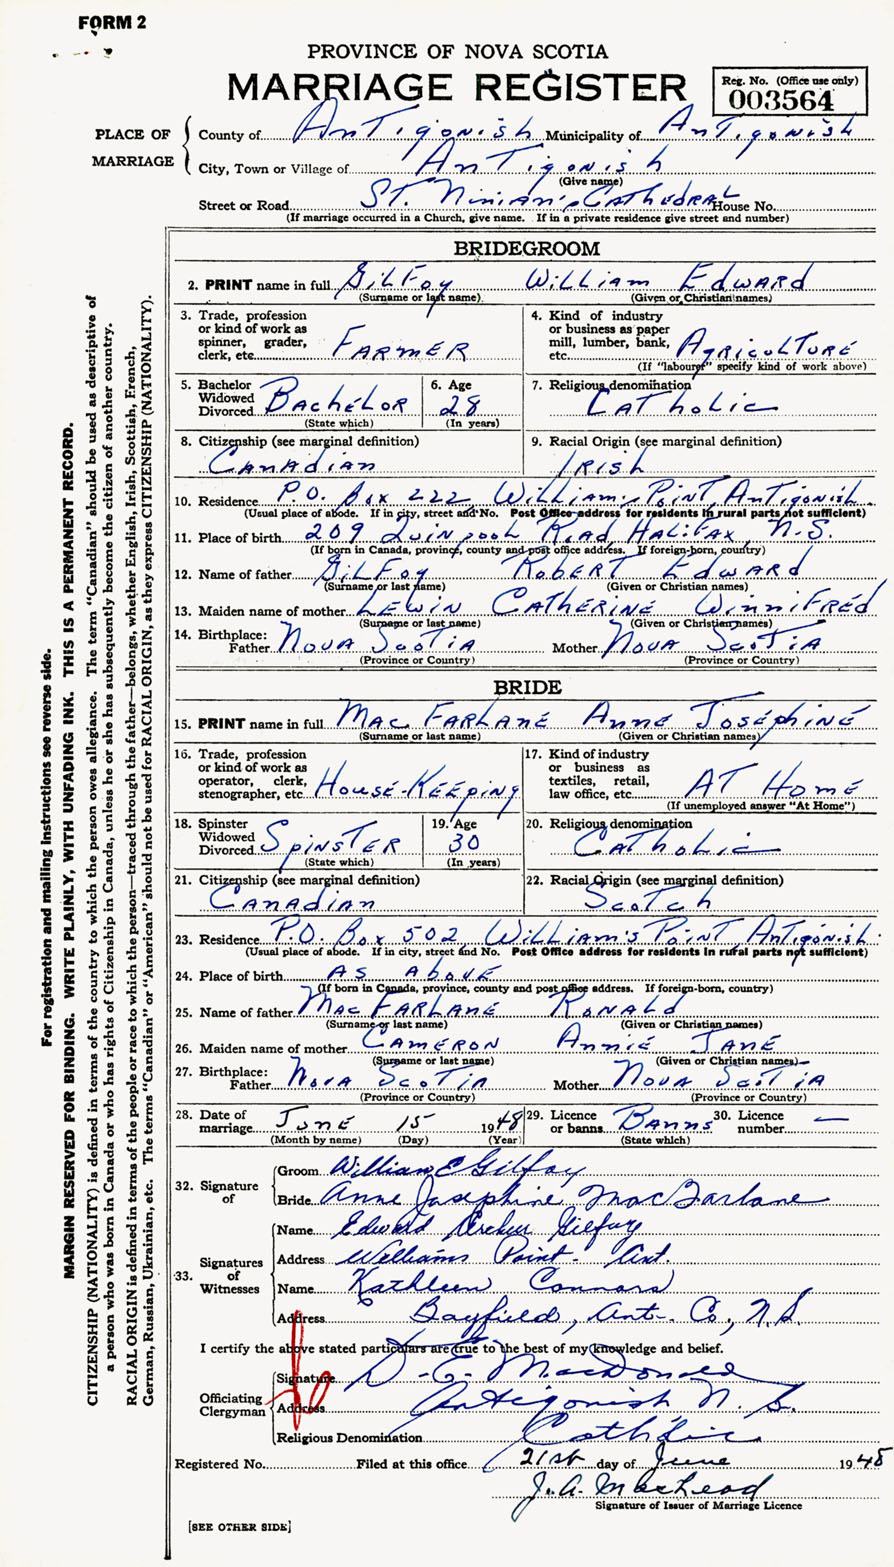 FORM 2
PROVINCE OF NOVA SCOTIA
MARRIAGE REGISTER
Reg. No. (Office use only)
003564
PLACE OF MARRIAGE
County of Antigonish Municipality of Antigonish
City, Town or Village of Antigonish
(Give name)
Street or Road St. Ninian's Cathedral House No.
(If marriage occurred in a Church, give name. If in a private residence give street and number)
BRIDEGROOM
2. PRINT name in full Gilfoy William Edward
(Surname or last name) (Given or Christian names)
3. Trade, profession or kind of work as spinner, grader, clerk, etc. Farmer
4. Kind of industry or business as paper mill, lumber, bank, etc. Agriculture
(If "labourer" specify kind of work above)
5. Bachelor Widowed Divorced Bachelor
(State which)
6. Age 28
(In years)
7. Religious denomination Catholic
8. Citizenship (see marginal definition) Canadian
9. Racial Origin (see marginal definition) Irish
10. Residence P.O. Box 222, William's Point, Antigonish.
(Usual place of abode. If in city, street and No. Post Office address for residents in rural parts not sufficient)
11. Place of birth 209 Quinpool Road, Halifax, N.S.
(If born in Canada, province, county and post office address. If foreign-born, country)
12. Name of father Gilfoy Robert Edward
(Surname or last name) (Given or Christian names)
13. Maiden name of mother Lewin Catherine Winnifred
(Surname or last name) (Given or Christian names)
14. Birthplace: Father Nova Scotia Mother Nova Scotia
(Province or Country) (Province or Country)
BRIDE
15. PRINT name in full MacFarlane Anne Josephine
(Surname or last name) (Given or Christian names)
16. Trade, profession or kind of work as operator, clerk, stenographer, etc House-Keeping
17. Kind of industry or business as textiles, retail, law office, etc. At Home
(If unemployed answer "At Home")
18. Spinster Widowed Divorced Spinster
(State which)
19. Age 30
(In years)
20. Religious denomination Catholic
21. Citizenship (see marginal definition) Canadian
22. Racial Origin (see marginal definition) Scotch
23. Residence P.O. Box 502, William's Point Antigonish.
(Usual place of abode. If in city, street and No. Post Office address for residents in rural parts not sufficient)
24. Place of birth As above
(If born in Canada, province, county and post office address. If foreign-born, country)
25. Name of father MacFarlane Ronald
(Surname or last name) (Given or Christian names)
26. Maiden name of mother Cameron Annie Jane
(Surname or last name) (Given or Christian names)
27. Birthplace: Father Nova Scotia Mother Nova Scotia
(Province or Country) (Province or Country)
28. Date of marriage June 15 1948
(Month by name) (Day) (Year)
29. Licence or banns Banns
(State which)
30. Licence number —
32. Signature of
Groom William E Gilfoy
Bride Anne Josephine MacFarlane
33. Signatures of Witnesses
Name Edward Gilfoy
Address Williams Point - Ant.
Name Kathleen Connors
Address Bayfield, Ant. Co., N.S.
I certify the above stated particulars are true to the best of my knowledge and belief.
Officiating Clergyman
Signature D. E. MacDonald
Address Antigonish N. S.
Religious Denomination Catholic
Registered No. Filed at this office 21st day of June 1948
J. A.
Signature of Issuer of Marriage Licence
[SEE OTHER SIDE]
For registration and mailing instructions see reverse side.
MARGIN RESERVED FOR BINDING. WRITE PLAINLY, WITH UNFADING INK. THIS IS A PERMANENT RECORD.
CITIZENSHIP (NATIONALITY) is defined in terms of the country to which the person owes allegiance. The term "Canadian" should be used as descriptive of
a person who was born in Canada or who has rights of Citizenship in Canada, unless he or she has subsequently become the citizen of another country.
RACIAL ORIGIN is defined in terms of the people or race to which the person—traced through the father—belongs, whether English, Irish, Scottish, French,
German, Russian, Ukrainian, etc. The terms "Canadian" or "American" should not be used for RACIAL ORIGIN, as they express CITIZENSHIP (NATIONALITY).